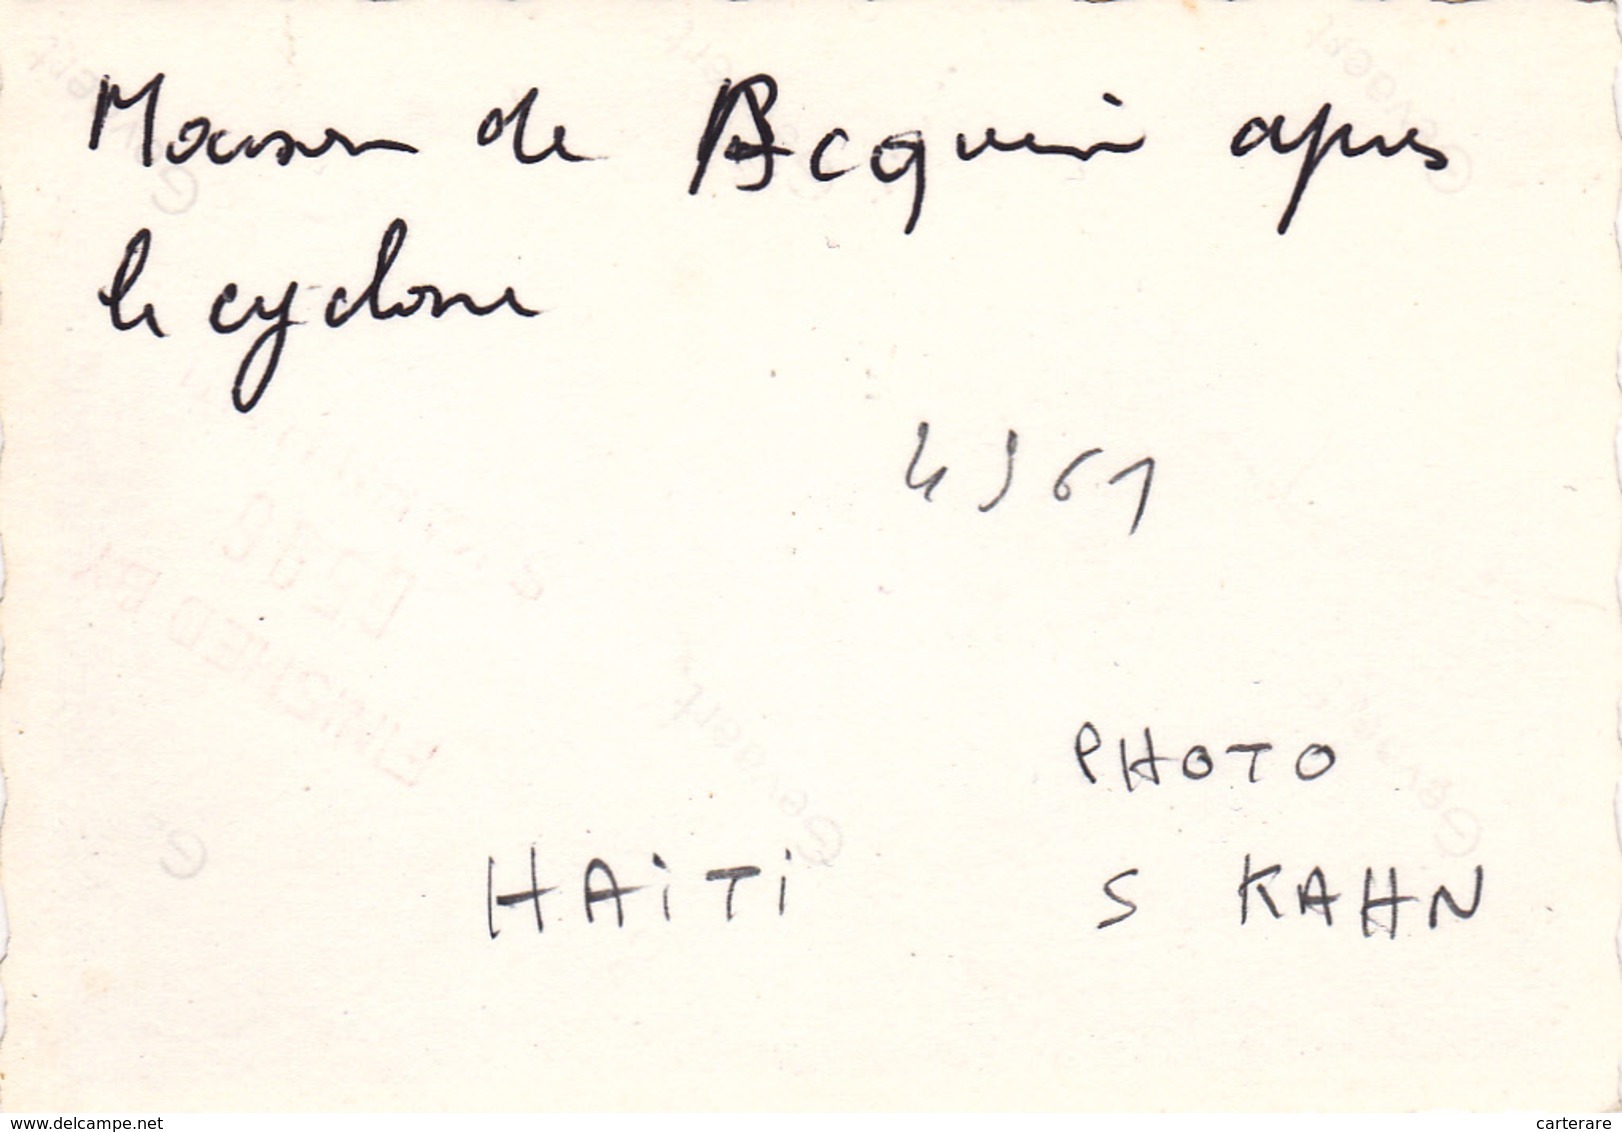 Maison de Acquin apres
le cyclone
4961
PHOTO
HAiTi S KAHN
Gevaert
FINISHED BY
www.delcampe.net
carterare